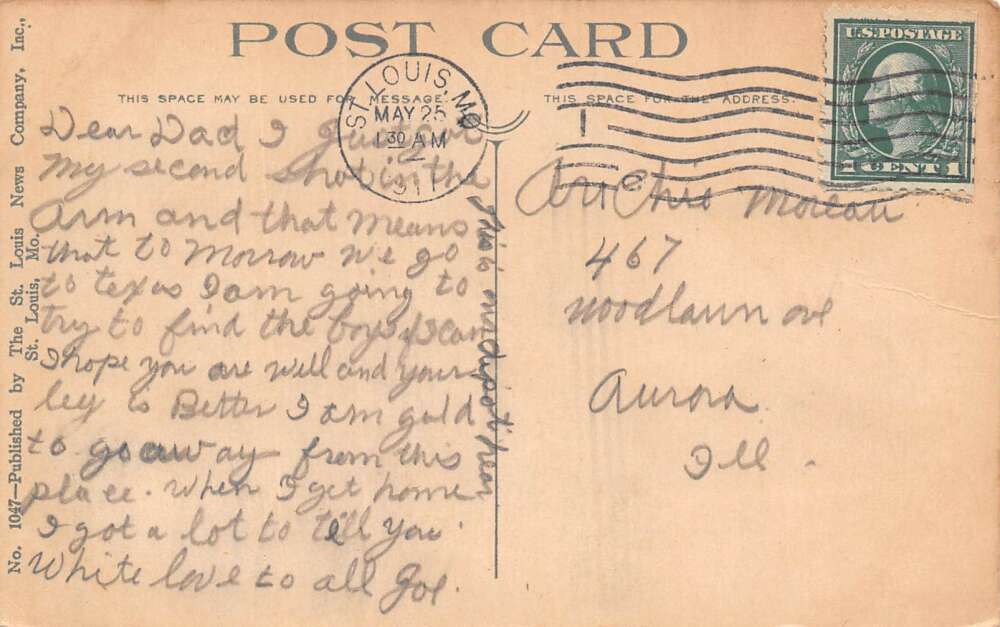 POST CARD
THIS SPACE MAY BE USED FOR MESSAGE.
THIS SPACE FOR THE ADDRESS.
ST. LOUIS, MO.
MAY 25
1 30 AM
U.S. POSTAGE
1 CENT 1
Dear Dad I Just got
My second shot in the
Arm and that means
that to Morrow we go
to texas I am going to
try to find the boys if I can
I hope you are well and your
leg is Better I am gald
to go away from this
place. When I get home
I got a lot to tell you
White love to all Joe.
this is our depot hear
Moreau
467
Woodlawn ave
Aurora
Ill.
No. 1047—Published by The St. Louis News Company, Inc.,
St. Louis, Mo.